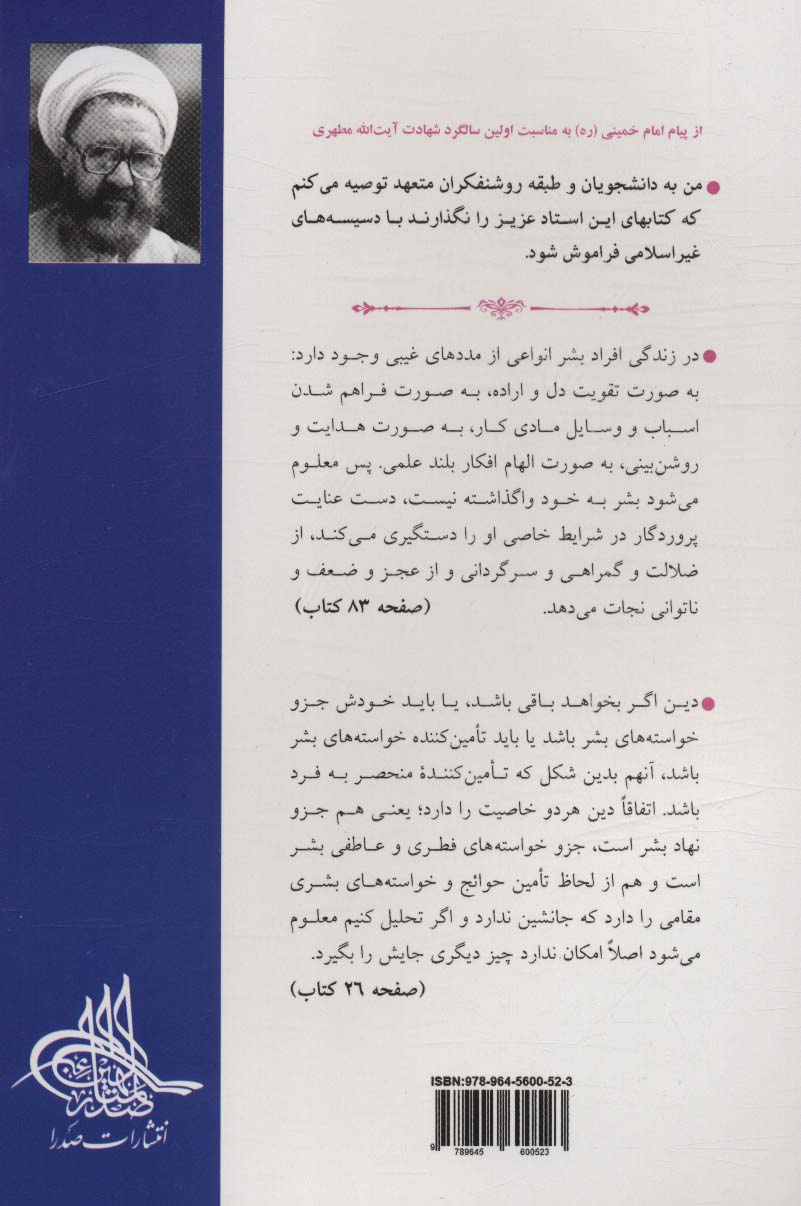 از پیام امام خمینی (ره) به مناسبت اولین سالگرد شهادت آیت‌الله مطهری
● من به دانشجویان و طبقه روشنفکران متعهد توصیه می‌کنم
که کتابهای این استاد عزیز را نگذارند با دسیسه‌های
غیراسلامی فراموش شود.
● در زندگی افراد بشر انواعی از مددهای غیبی وجود دارد:
به صورت تقویت دل و اراده، به صورت فراهم شدن
اسباب و وسایل مادی کار، به صورت هدایت و
روشن‌بینی، به صورت الهام افکار بلند علمی. پس معلوم
می‌شود بشر به خود واگذاشته نیست، دست عنایت
پروردگار در شرایط خاصی او را دستگیری می‌کند، از
ضلالت و گمراهی و سرگردانی و از عجز و ضعف و
ناتوانی نجات می‌دهد. (صفحه ۸۳ کتاب)
● دین اگر بخواهد باقی باشد، یا باید خودش جزو
خواسته‌های بشر باشد یا باید تأمین‌کننده خواسته‌های بشر
باشد، آنهم بدین شکل که تأمین‌کنندهٔ منحصر به فرد
باشد. اتفاقاً دین هردو خاصیت را دارد؛ یعنی هم جزو
نهاد بشر است، جزو خواسته‌های فطری و عاطفی بشر
است و هم از لحاظ تأمین حوائج و خواسته‌های بشری
مقامی را دارد که جانشین ندارد و اگر تحلیل کنیم معلوم
می‌شود اصلاً امکان ندارد چیز دیگری جایش را بگیرد.
(صفحه ۲۶ کتاب)
ISBN:978-964-5600-52-3
9 789645 600523
انتشارات صدرا